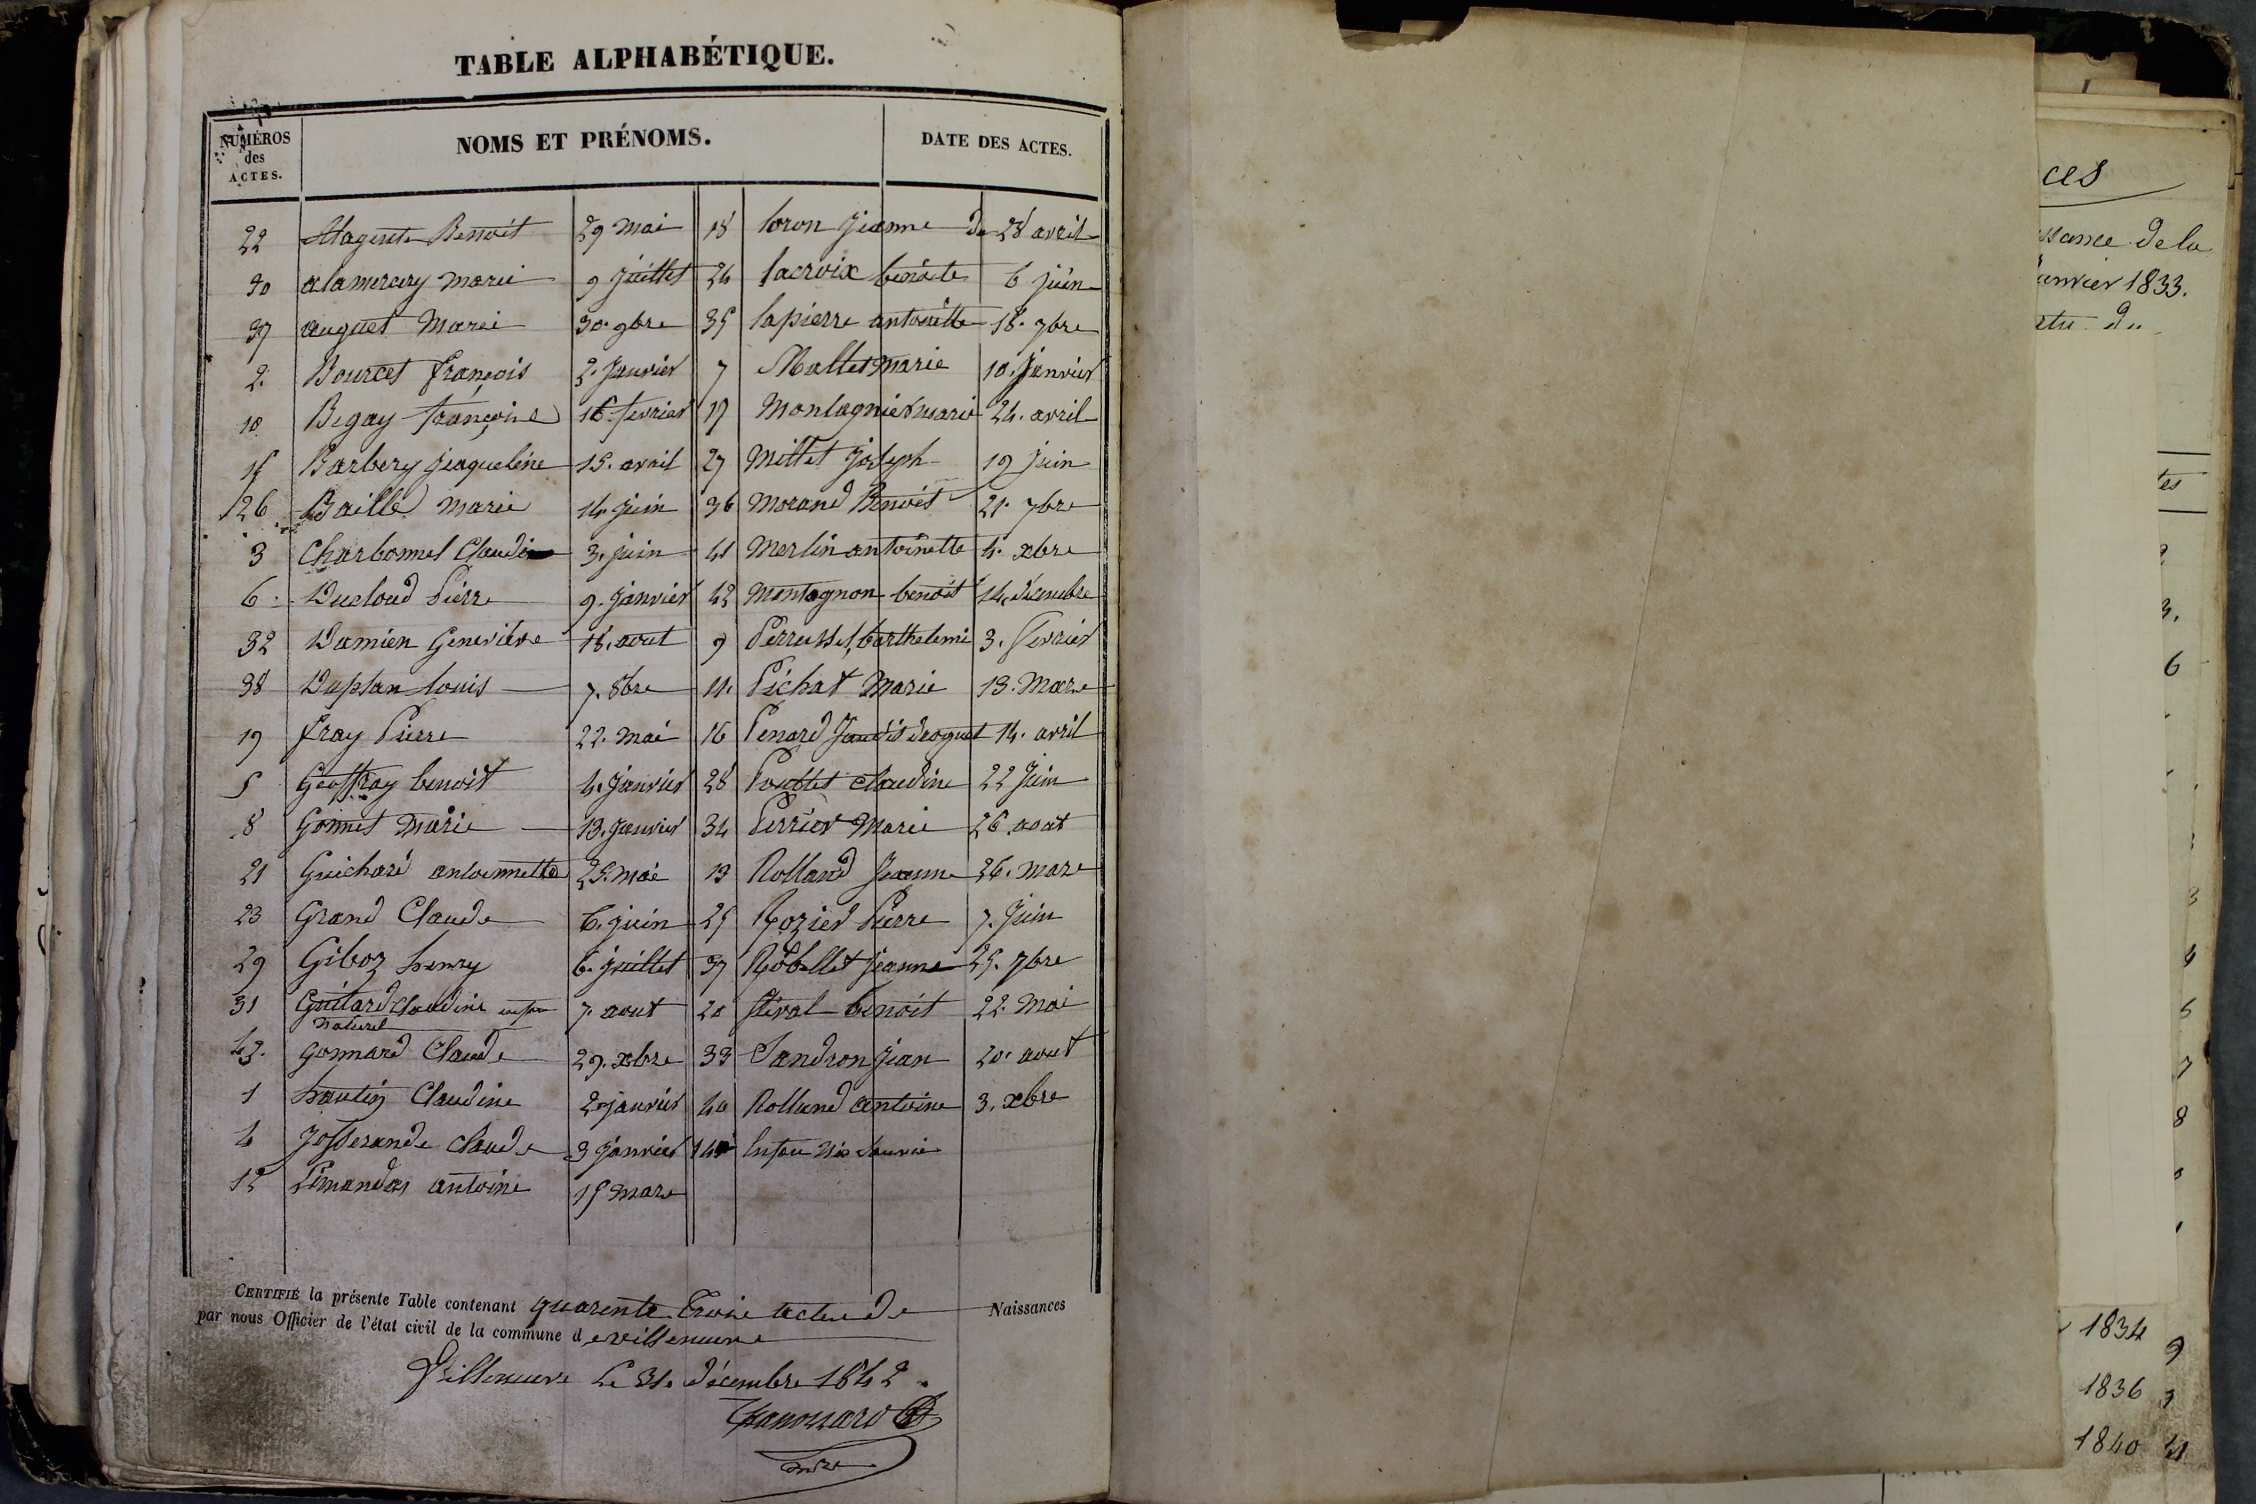 TABLE ALPHABÉTIQUE.
NUMÉROS
des
ACTES.
NOMS ET PRÉNOMS.
DATE DES ACTES.
22 Benoit 29 mai
30 alamercery marie 9 juillet
auguet Marie 30. 9bre
2. Bourcet françois 2. Janvier
10 Begay françoise 16. fevrier
15 Barbery jacqueline 15. avril
26 Baillé marie 14. juin
3 Charbonnet 3. juin
6. Ducloud Pierre 9. janvier
32 Damien Geneviève 18. aout
38 Duplan louis 7. 8bre
19 fray Pierre 22. mai
5 Geoffray benoit 4. Janvier
8 Gonnet marie 13. Janvier
21 Guichard antoinnette 25. mai
23 Grand Claude 6. juin
29 Giboz henry 6. juillet
31 Guitard Claudine 7. aout
naturel
43. gonnard Claude 29. xbre
1 hautin Claudine 2 janvier
4 Josserande claude 3 janvier
12 Limandas antoine 15 mars
18 loron jeanne 28 avril
24 lacroix benoite 6 juin
35 lapierre antoinette 18. 7bre
7 Mallet marie 10. janvier
17 Montagnier marie 24. avril
27 Millet joseph 19 juin
36 Morand Benoit 21. 7bre
41 Merlin antoinette 4. xbre
42 Montagnon benoit 14. décembre
9 Perrussel, barthelemi 3. fevrier
11. Pichat Marie 13. Mars
16 Penard 14. avril
28 claudine 22 Juin
34 Perrier Marie 26. aout
13 Rolland Jeanne 26. mars
25 Rozier Pierre 7. Juin
37 Robellet jeanne 25. 7bre
20 benoit 22. mai
33 Sandron jean 20. aout
40 Rolland antoine 3. xbre
14
CERTIFIÉ la présente Table contenant quarente trois actes de Naissances
par nous Officier de l'état civil de la commune de villeneuve
Villeneuve le 31. décembre 1842.
ces
ssance de la
anvier 1833.
1834
1836
1840